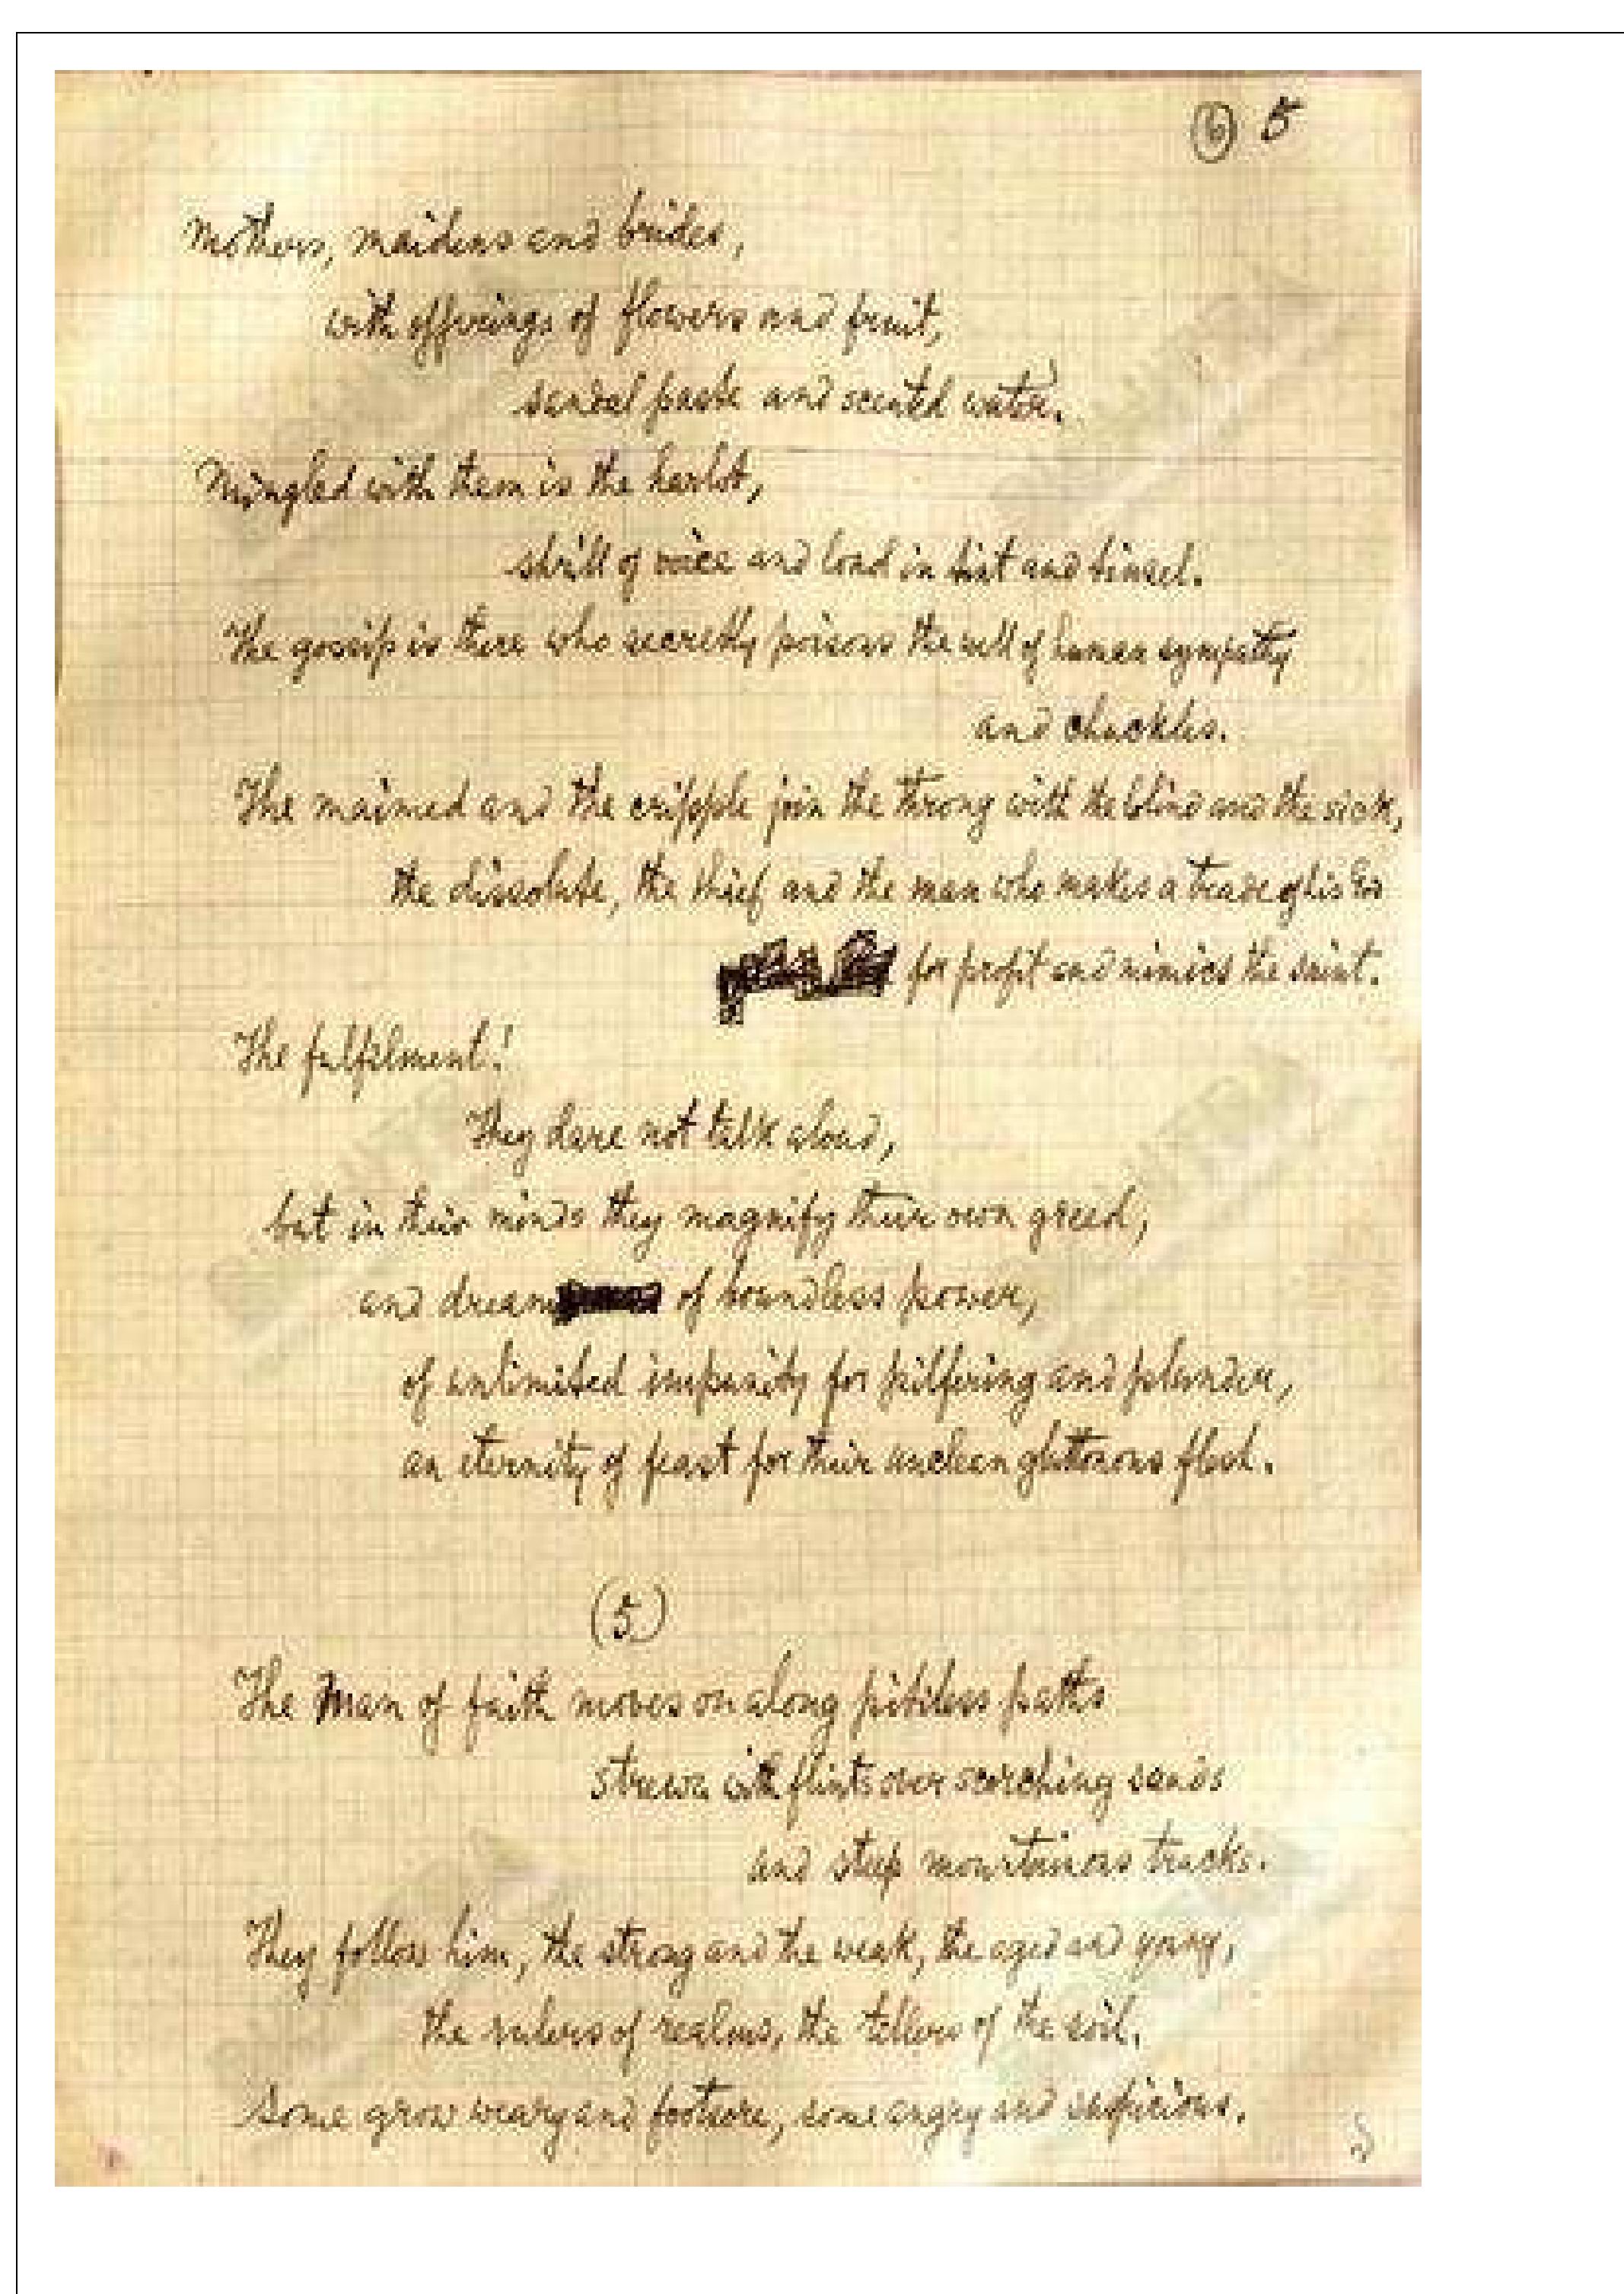 ⑥ 5
Mothers, maidens and brides,
with offerings of flowers and fruit,
sandal paste and scented water.
Mingled with them is the harlot,
shrill of voice and loud in tint and tinsel.
The gossip is there who secretly poisons the well of human sympathy
and chuckles.
The maimed and the cripple join the throng with the blind and the sick,
the dissolute, the thief and the man who makes a trade of his God
for profit and mimics the saint.
The fulfilment!
They dare not talk aloud,
but in their minds they magnify their own greed,
and dream of boundless power,
of unlimited impunity for pilfering and plunder,
an eternity of feast for their unclean gluttonous flesh.
(5)
The Man of faith moves on along pitiless paths
strewn with flints over scorching sands
and steep mountainous tracks.
They follow him, the strong and the weak, the aged and young,
the rulers of realms, the tillers of the soil.
Some grow weary and footsore, some angry and suspicious.